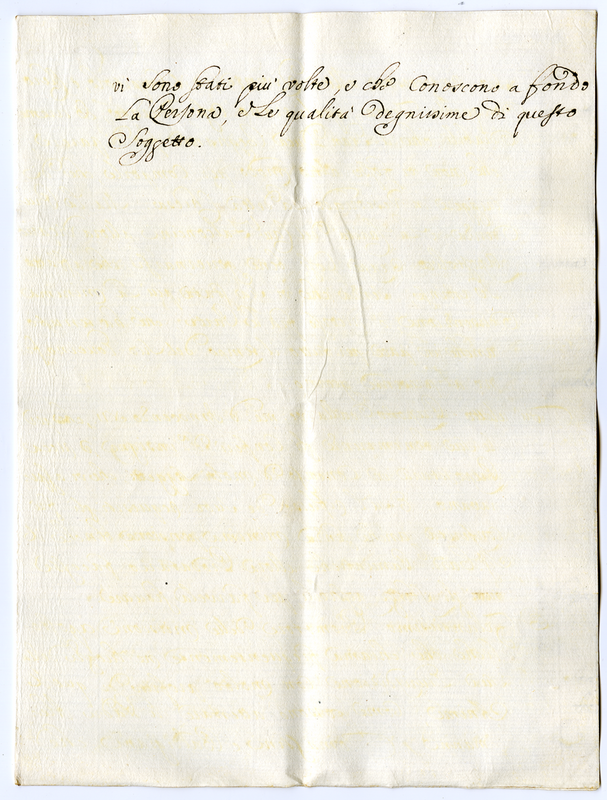 vi sono stati più volte, e che Conoscono a fondo
La Persona, e Le qualità Degnissime di questo
Soggetto.